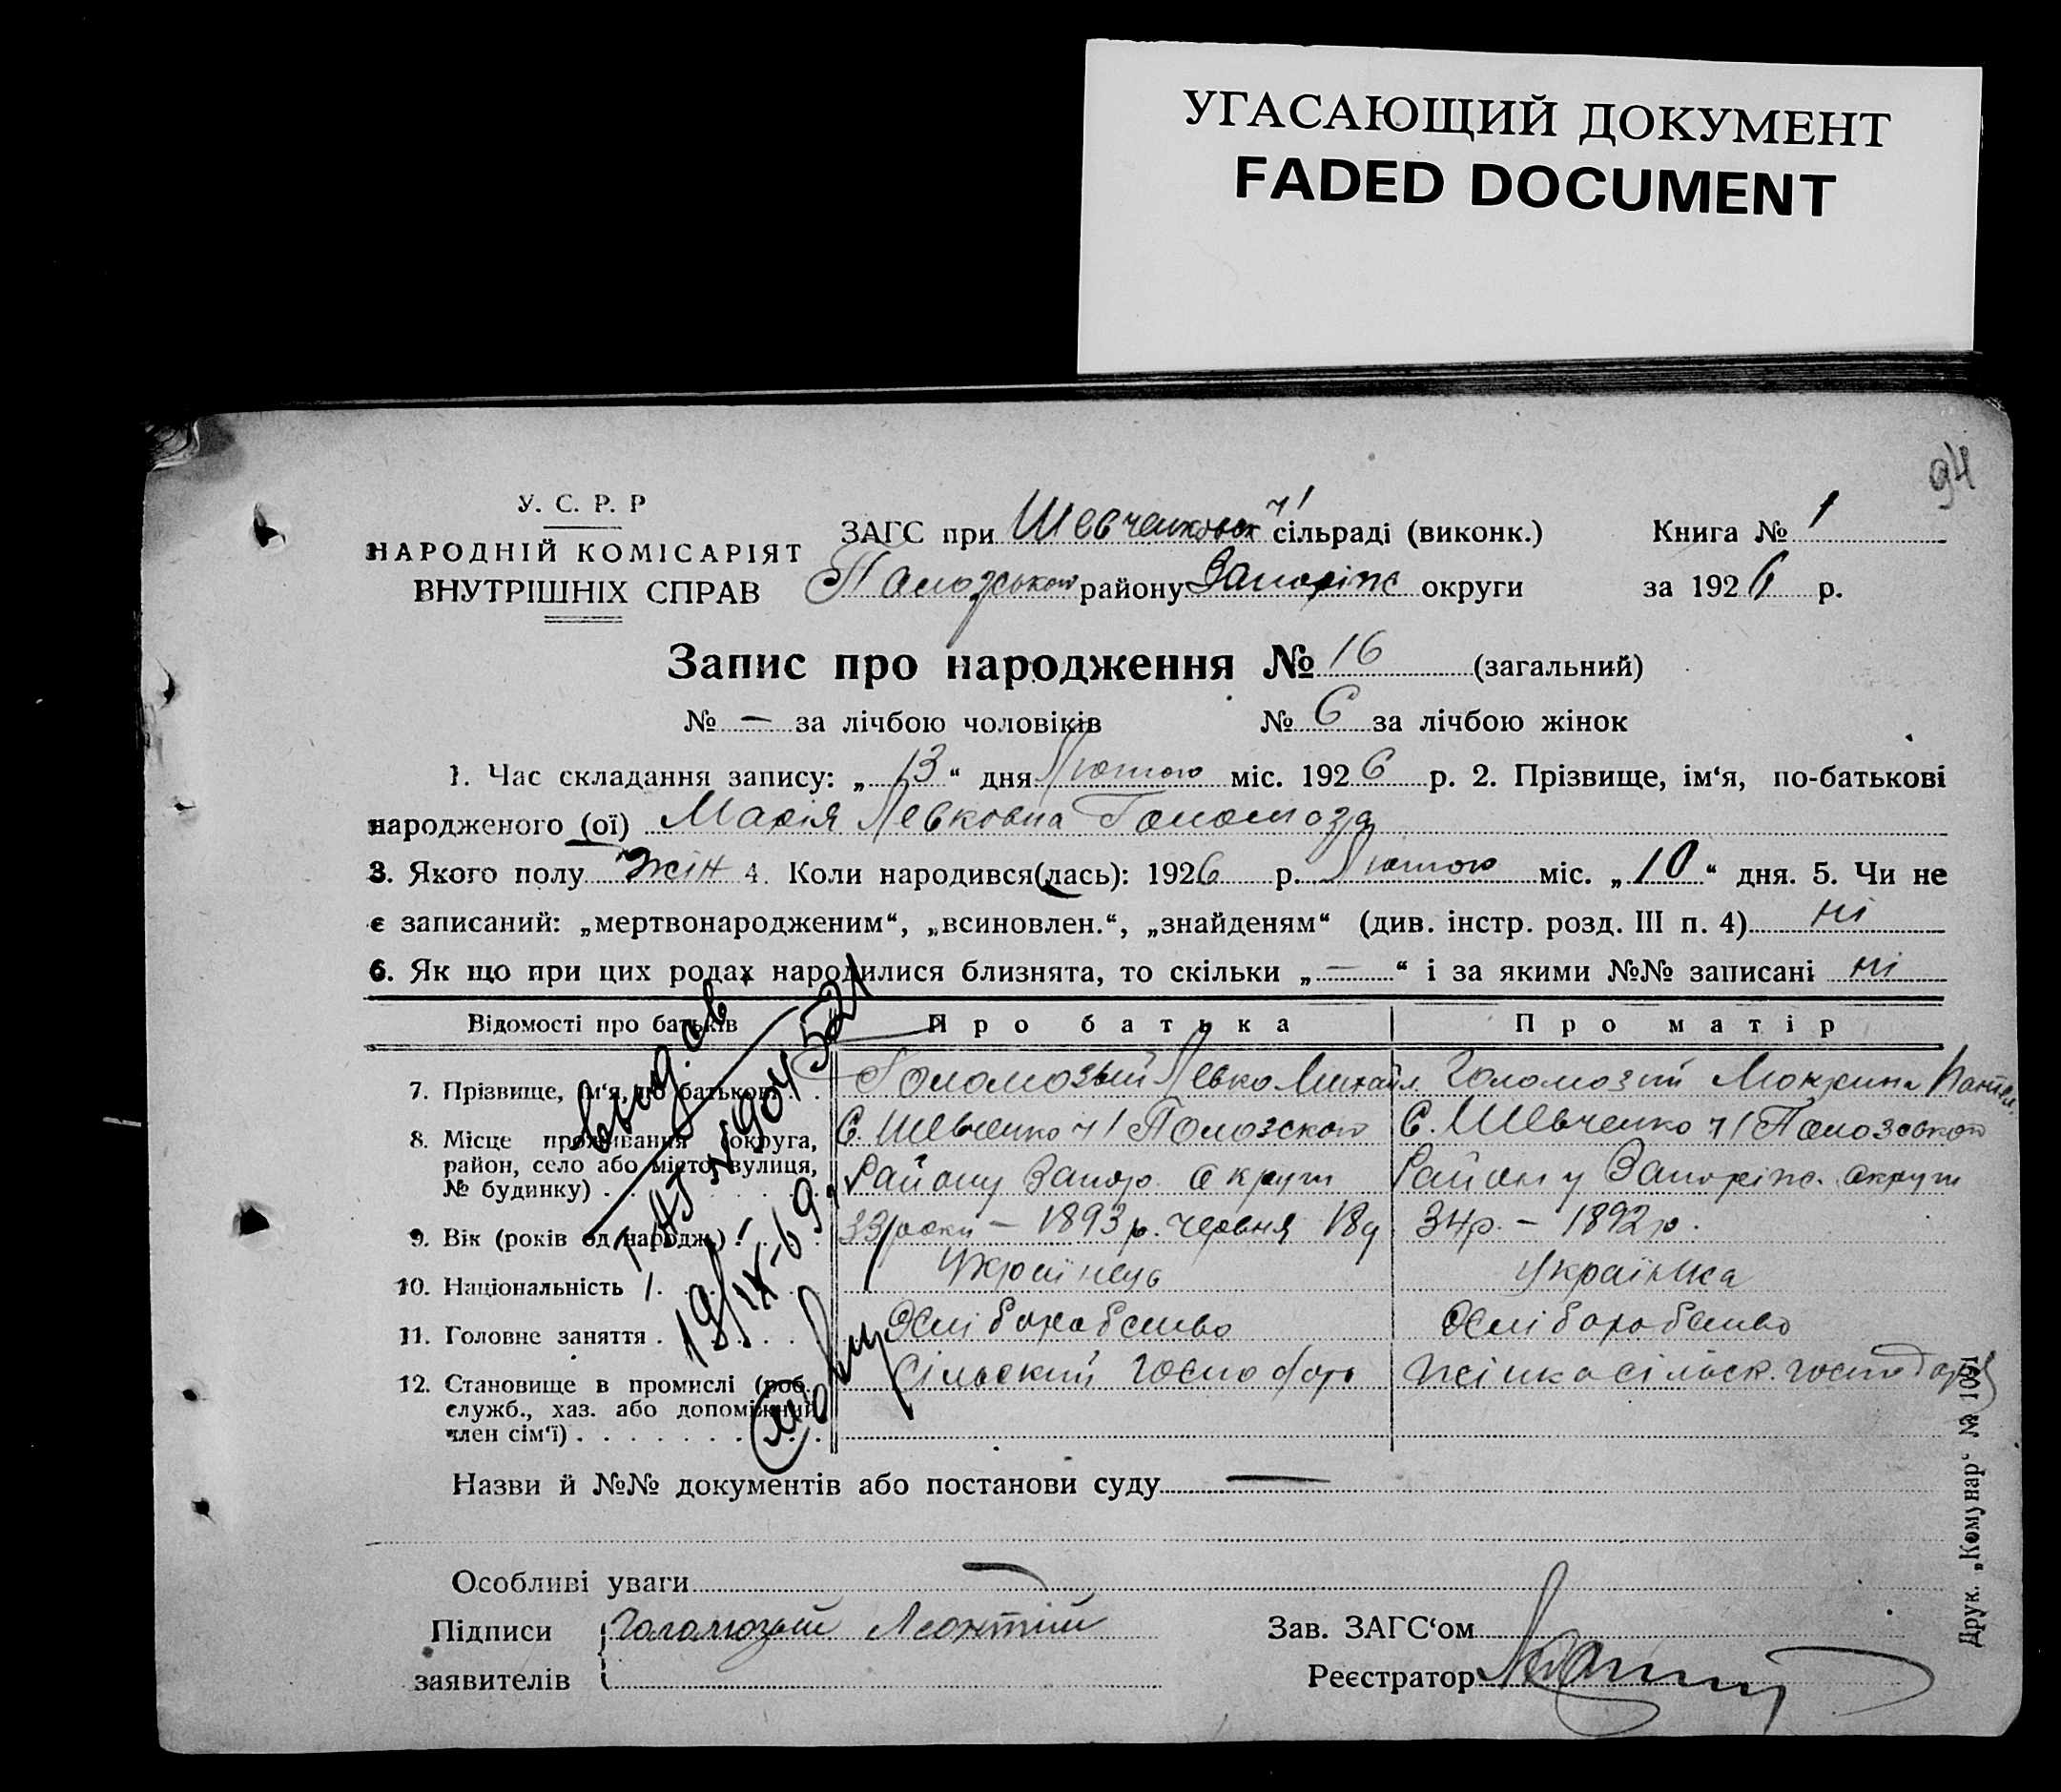 УГАСАЮЩИЙ ДОКУМЕНТ
FADED DOCUMENT
94
У. С. Р. Р
НАРОДНІЙ КОМІСАРІЯТ
ВНУТРІШНІХ СПРАВ
ЗАГС при Шевченковск ч1 сільраді (виконк.)
Книга № 1
Пологського району Запоріж округи
за 1926 р.
Запис про народження № 16 (загальний)
№ — за лічбою чоловіків № 6 за лічбою жінок
1. Час складання запису: „13“ дня Лютого міс. 1926 р. 2. Прізвище, ім‘я, по-батькові
народженого (ої) Марія Левковна Голомоза
3. Якого полу жін 4. Коли народився(лась): 1926 р. Лютого міс. „10“ дня. 5. Чи не
є записаний: „мертвонародженим“, „всиновлен.“, „знайденям“ (див. інстр. розд. III п. 4) ні
6. Як що при цих родах народилися близнята, то скільки „—“ і за якими №№ записані ні
Відомості про батьків Про батька Про матір
7. Прізвище, ім‘я, по батькові . . Голомозый Левко Михайл. Голомозий Мокрина Пантел.
8. Місце проживання (округа, С. Шевченко ч1 Пологского С. Шевченко ч1 Пологського
район, село або місто, вулиця, Району Запор. округи Району Запоріж. округи
№ будинку) . . .
9. Вік (років од народж.) . 33 роки — 1893 р. червня 18 д. 34 р. — 1892 р.
10. Національність . Українець Українка
11. Головне заняття . . . Хліборобство Хліборобство
12. Становище в промислі (роб. Сільский господарь жінка сільск. господаря
служб., хаз. або допоміжний
член сім‘ї) . . . . . . . . . .
выд. св.
1-АЯ № 904521
19/IX-69
Назви й №№ документів або постанови суду —
Особливі уваги —
Підписи Голомозый Леонтий
заявителів
Зав. ЗАГС‘ом
Реєстратор
Друк. „Комунар“ № 1091